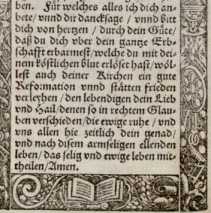 ben. Für welches alles ich dich an-
bete/ vnnd dir dancksage / vnnd bitt
dich von hertzen / durch dein Güte/
daß du dich vber dein gantze Erb-
schafft erbarmest/ welche du mit dei-
nem köstlichen blut erlöset hast/ wöl-
lest auch deiner Kirchen ein gute
Reformation vnnd stätten frieden
verleyhen / den lebendigen dein Lieb
vnd Hail/ denen so in rechtem Glau-
ben verschieden/ die ewige ruhe / vnd
vns allen hie zeitlich dein genad/
vnd nach disem armseligen ellenden
leben/ das selig vnd ewige leben mit-
theilen/ Amen.